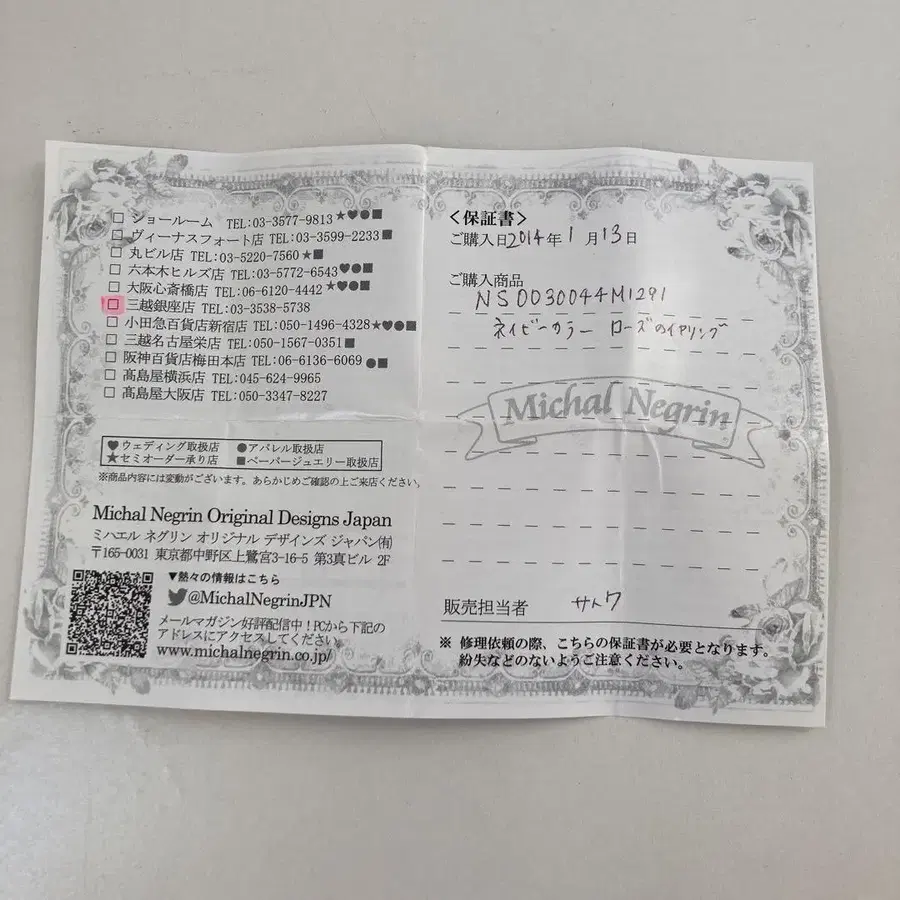 □ ショールーム TEL:03-3577-9813★♥●■
□ ヴィーナスフォート店 TEL:03-3599-2233■
□ 丸ビル店 TEL:03-5220-7560★■
□ 六本木ヒルズ店 TEL:03-5772-6543♥●■
□ 大阪心斎橋店 TEL:06-6120-4442★♥●■
□ 三越銀座店 TEL:03-3538-5738
□ 小田急百貨店新宿店 TEL:050-1496-4328★♥●■
□ 三越名古屋栄店 TEL:050-1567-0351■
□ 阪神百貨店梅田本店 TEL:06-6136-6069 ●■
□ 髙島屋横浜店 TEL:045-624-9965
□ 髙島屋大阪店 TEL:050-3347-8227
♥ウェディング取扱店 ●アパレル取扱店
★セミオーダー承り店 ■ペーパージュエリー取扱店
※商品内容には変動がございます。あらかじめご確認の上ご来店ください。
Michal Negrin Original Designs Japan
ミハエル ネグリン オリジナル デザインズ ジャパン(有)
〒165-0031 東京都中野区上鷺宮3-16-5 第3真ビル 2F
▼熱々の情報はこちら
@MichalNegrinJPN
メールマガジン好評配信中！PCから下記の
アドレスにアクセスしてください。
www.michalnegrin.co.jp/
<保証書>
ご購入日2014年1月13日
ご購入商品
NS0030044M1291
ネイビーカラー ローズのイヤリング
Michal Negrin
販売担当者 サトウ
※ 修理依頼の際、こちらの保証書が必要となります。
紛失などのないようご注意ください。